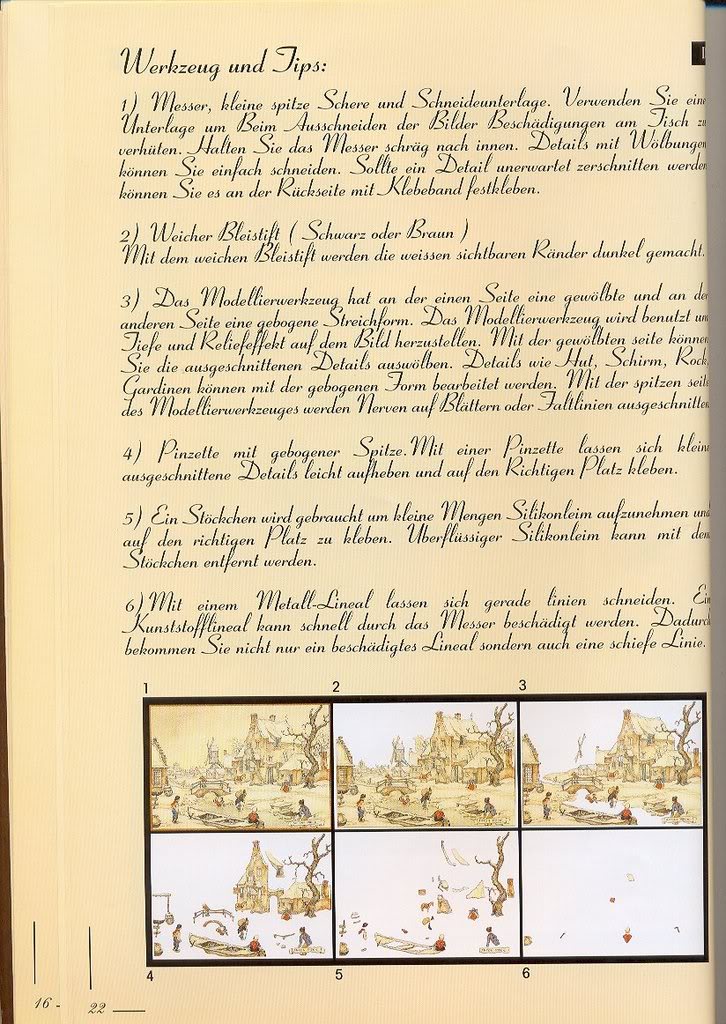 Werkzeug und Tips:
1) Messer, kleine spitze Schere und Schneideunterlage. Verwenden Sie
Unterlage um Beim Ausschneiden der Bilder Beschädigungen am Tisch
verhüten. Halten Sie das Messer schräg nach innen. Details mit Wölbungen
können Sie einfach schneiden. Sollte ein Detail unerwartet zerschnitten werden
können Sie es an der Rückseite mit Klebeband festkleben.
2) Weicher Bleistift ( Schwarz oder Braun )
Mit dem weichen Bleistift werden die weissen sichtbaren Ränder dunkel gemacht.
3) Das Modellierwerkzeug hat an der einen Seite eine gewölbte und an
anderen Seite eine gebogene Streichform. Das Modellierwerkzeug wird benutzt um
Tiefe und Reliefeffekt auf dem Bild herzustellen. Mit der gewölbten seite können
Sie die ausgeschnittenen Details auswölben. Details wie Hut, Schirm, Rock,
Gardinen können mit der gebogenen Form bearbeitet werden. Mit der spitzen seite
des Modellierwerkzeuges werden Nerven auf Blättern oder Faltlinien ausgeschnitten
4) Pinzette mit gebogener Spitze.Mit einer Pinzette lassen sich klein
ausgeschnittene Details leicht aufheben und auf den Richtigen Platz kleben.
5) Ein Stöckchen wird gebraucht um kleine Mengen Silikonleim aufzunehmen und
auf den richtigen Platz zu kleben. Uberflüssiger Silikonleim kann mit dem
Stöckchen entfernt werden.
6) Mit einem Metall-Lineal lassen sich gerade linien schneiden.
Kunststofflineal kann schnell durch das Messer beschädigt werden. Dadurch
bekommen Sie nicht nur ein beschädigtes Lineal sondern auch eine schiefe Linie.
1 2 3
4 5 6
16 -
22